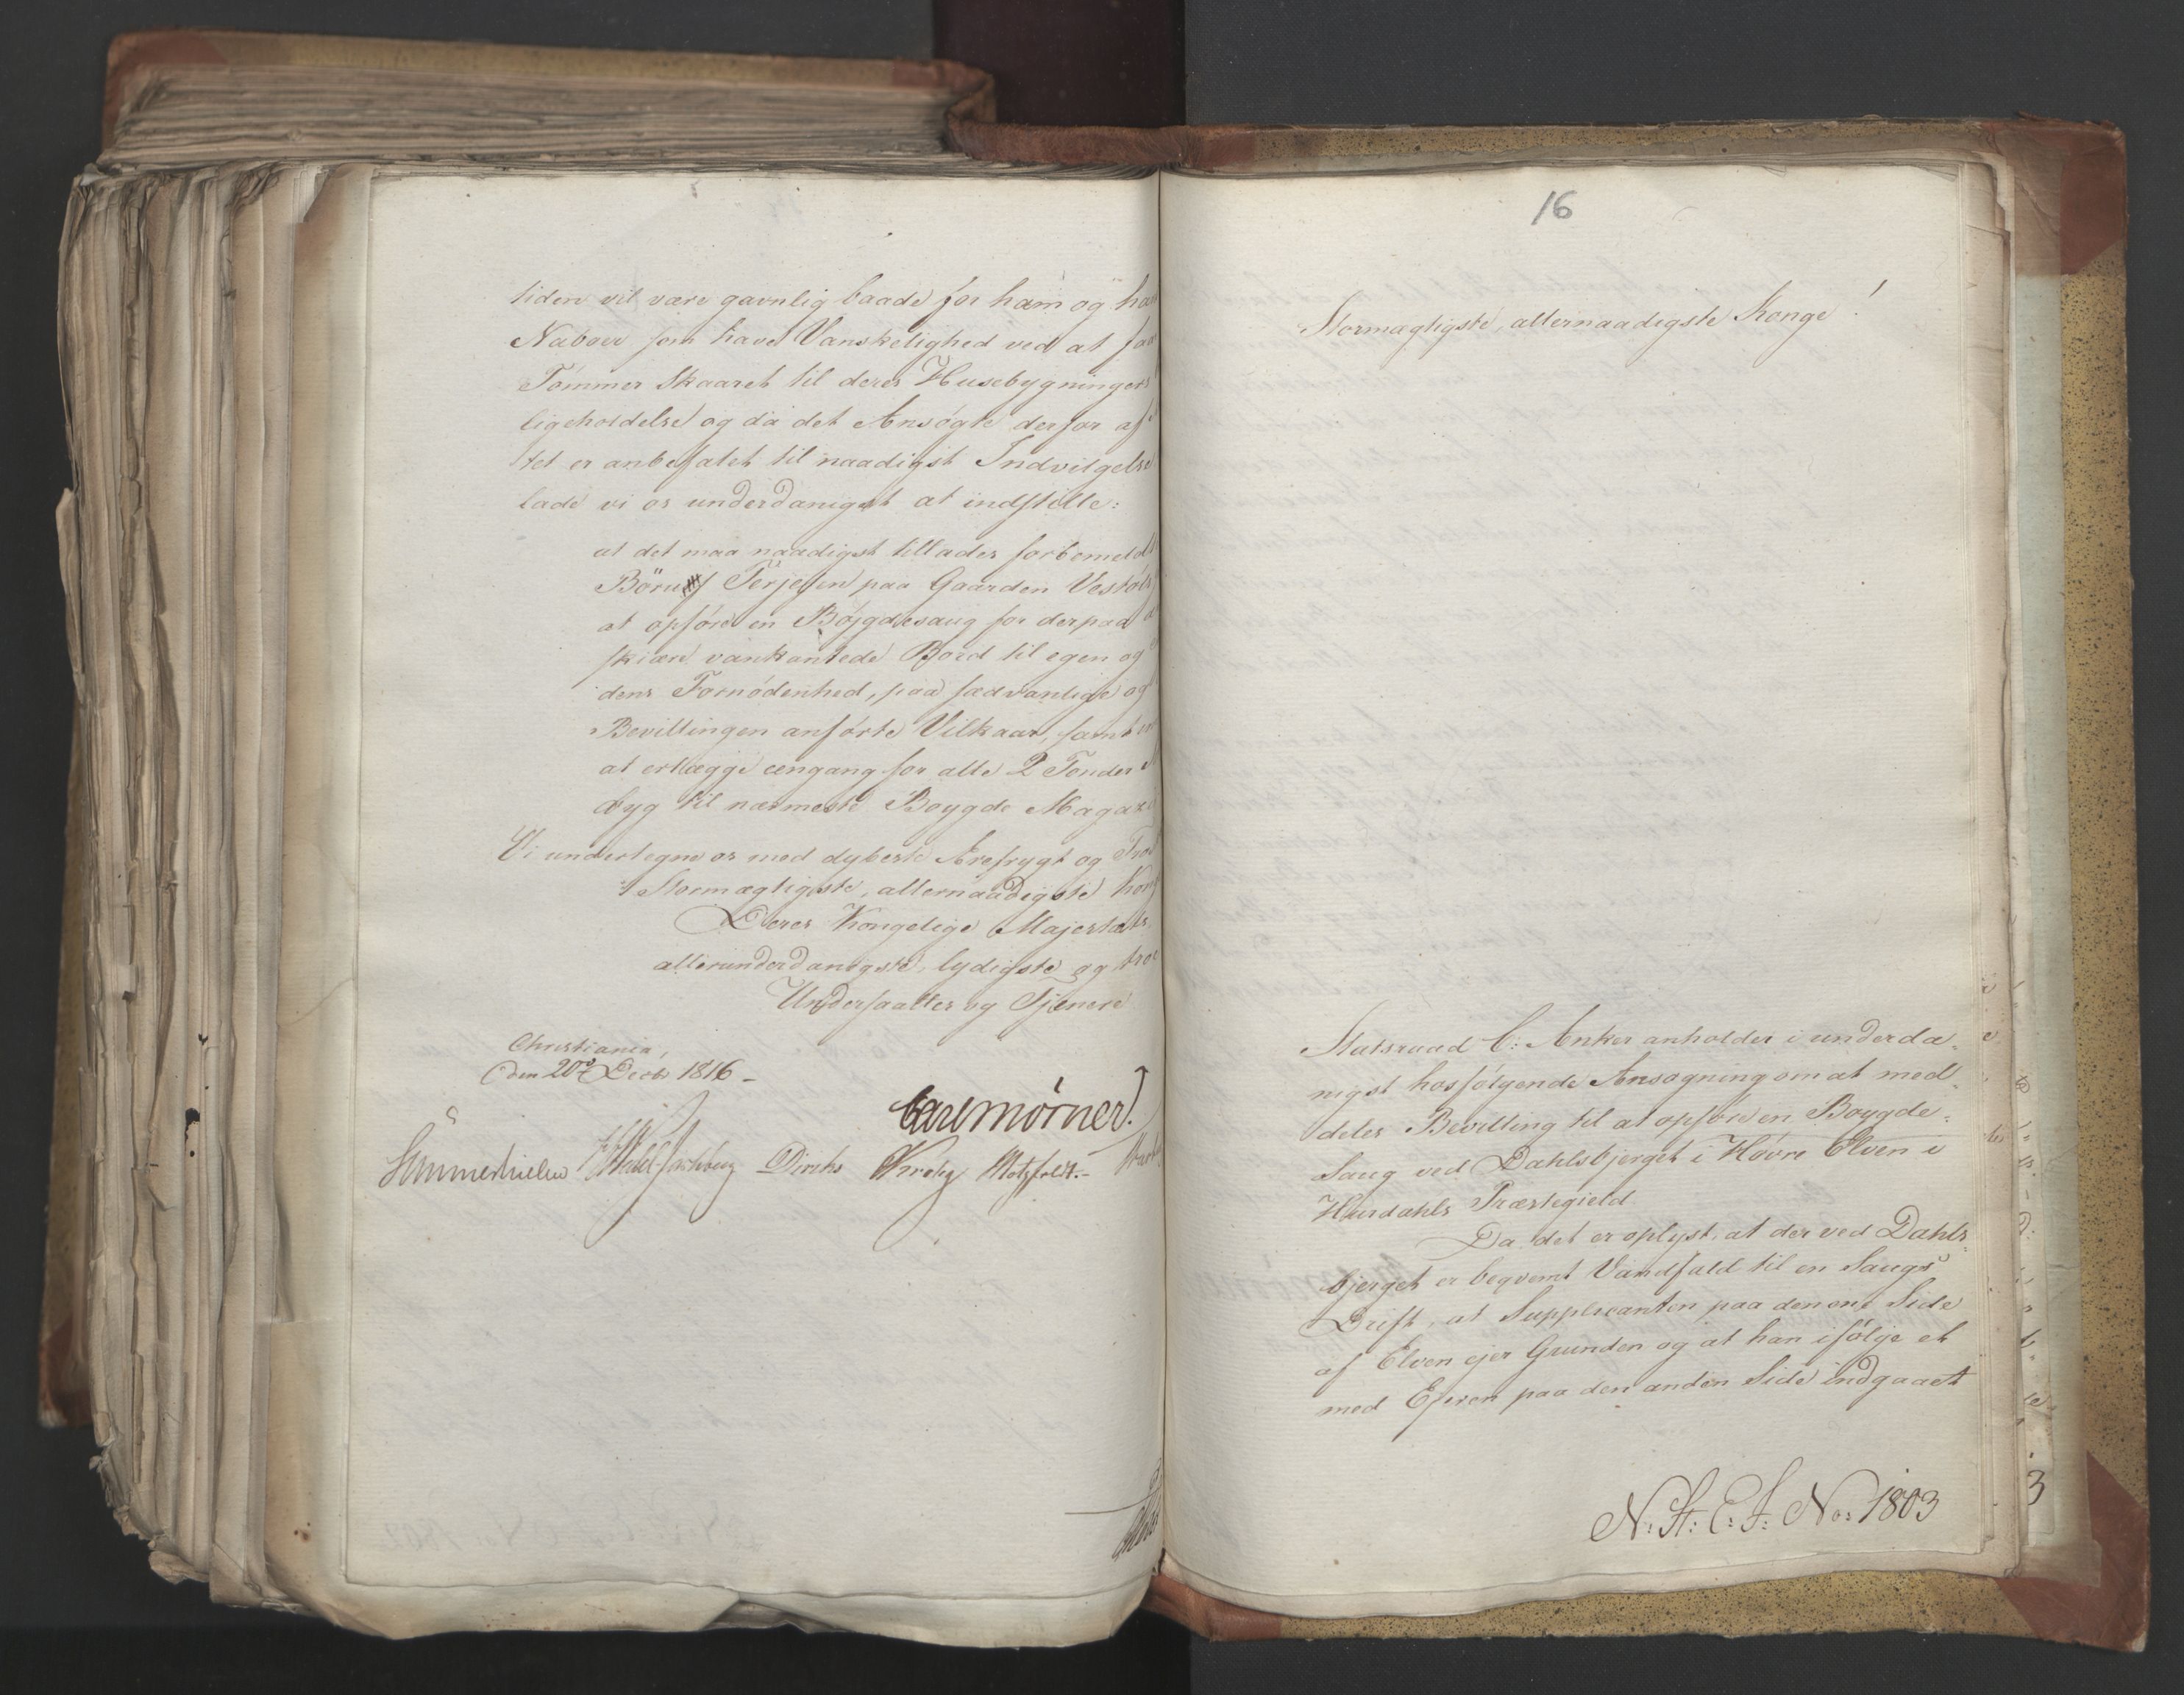 tiden vil være gavnlig baade for ham og
Naboer som have Vanskelighed ved at
Tømmer skaaret til deres Husebygningers
ligeholdelse og da det Ansøgte derfor af
tet er anbefalet til naadigst Indvilgelse
lade vi os underdanigst at indstille:
at det maa naadigst tillades forbemeldt
Terjesen paa Gaarden
at opføre en Bøjgdesaug for derpaa
skiære vankantede Bord til egen og
dens Fornødenhed, paa sædvanlige og
Bevillingen anførte Vilkaar, samt
at erlægge eengang for alle 2 Tønder
byg til nærmeste Boygde
Vi undertegne os med dybeste Ærefrygt og
Stormægtigste, allernaadigste
Deres Kongelige Majestæts
allerunderdanigste, lydigste og
Undersaatter og Tjenere
Christiania,
den 20de Decbr 1816 –
Carl Mörner.
Sommerhielm Diriks Krohg Motzfeldt.
16
Stormægtigste, allernaadigste Konge!
Statsraad C: Anker anholder i underda-
nigst hosfølgende Ansøgning om at med-
deles Bevilling til at opføre en Boygde-
Saug ved Dahlsbjerget i Høvre Elven i
Hurdahls Præstegield
Da det er oplyst, at der ved Dahls-
bjerget er beqvemt Vandfald til en Saugs
Drift, at Supplicanten paa den ene Side
af Elven ejer Grunden og at han ifølge et
med Ejeren paa den anden Side indgaaet
N: St: E: I: No: 1803